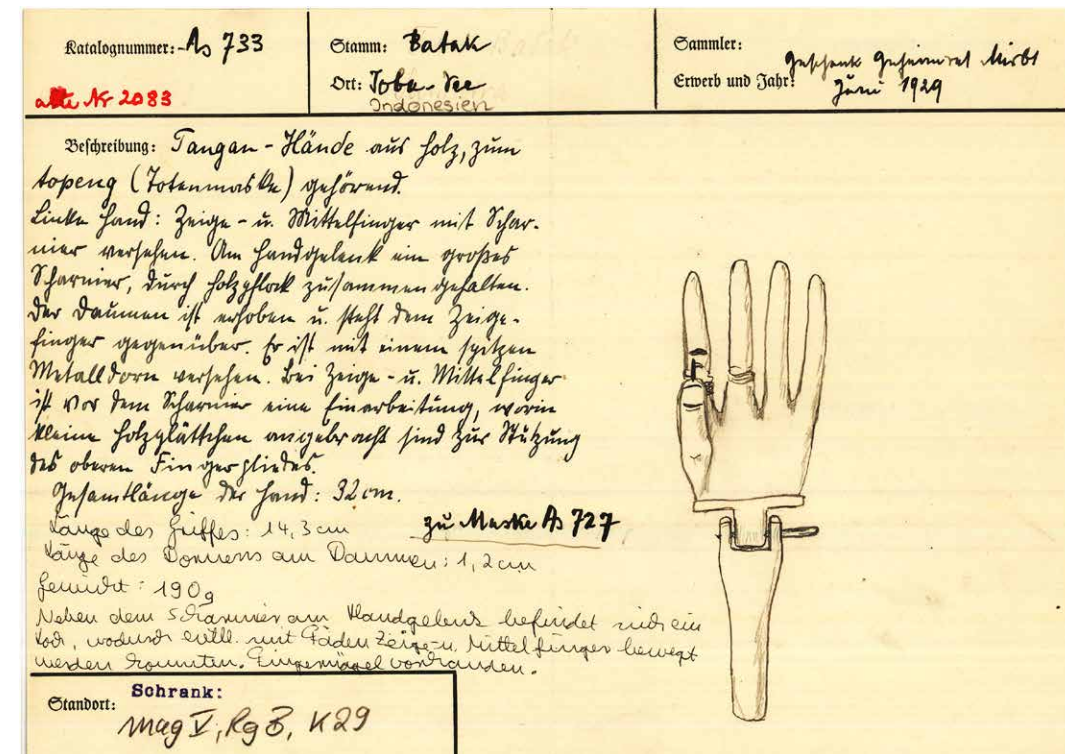 Katalognummer: As 733
alte Nr 2083
Stamm: Batak
Ort: Toba-See
Indonesien
Sammler: Geschenk Geheimrat Mirbt
Erwerb und Jahr: Juni 1929
Beschreibung: Tangan - Hände aus Holz, zum
topeng (Totenmaske) gehörend.
Linke Hand: Zeige- u. Mittelfinger mit Schar-
nier versehen. Am Handgelenk ein großes
Scharnier, durch Holzpflock zusammengehalten.
Der Daumen ist erhoben u. steht dem Zeige-
finger gegenüber. Er ist mit einem spitzen
Metalldorn versehen. Bei Zeige- u. Mittelfinger
ist vor dem Scharnier eine Einarbeitung, worin
kleine Holzplättchen angebracht sind zur Stützung
des oberen Fingergliedes.
Gesamtlänge der Hand: 32 cm.
zu Maske As 727
Länge des Griffes: 14,3 cm
Länge des Dornens am Daumen: 1,2 cm
Gewicht: 190g
Neben dem Scharnier am Handgelenk befindet sich ein
Loch, wodurch evtll. mit Fäden Zeige- u. Mittelfinger bewegt
werden konnten. Fingernägel vorhanden.
Standort: Schrank:
Mag V, Rg B, K29